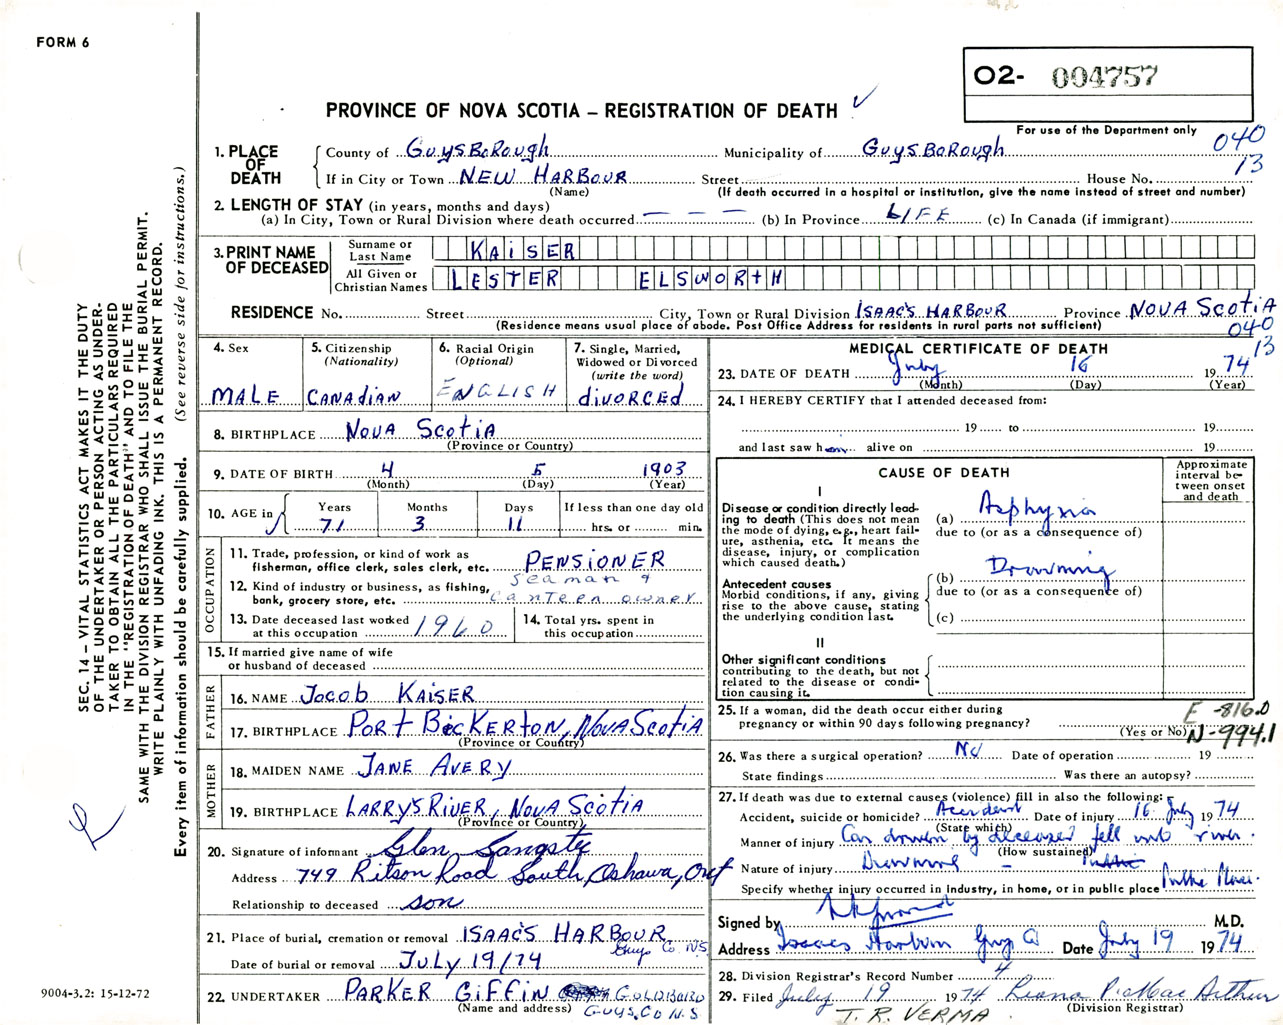 FORM 6
O2- 004757
PROVINCE OF NOVA SCOTIA – REGISTRATION OF DEATH ✓
For use of the Department only
040
13
1. PLACE OF DEATH
County of GUYSBOROUGH Municipality of GUYSBOROUGH
If in City or Town NEW HARBOUR Street House No.
(Name) (If death occurred in a hospital or institution, give the name instead of street and number)
2. LENGTH OF STAY (in years, months and days)
(a) In City, Town or Rural Division where death occurred — — — (b) In Province LIFE (c) In Canada (if immigrant)
3. PRINT NAME OF DECEASED
Surname or Last Name KAISER
All Given or Christian Names LESTER ELSWORTH
RESIDENCE No. Street City, Town or Rural Division ISAAC'S HARBOUR Province NOVA SCOTIA
(Residence means usual place of abode. Post Office Address for residents in rural parts not sufficient)
040
13
4. Sex
MALE
5. Citizenship
(Nationality)
CANADIAN
6. Racial Origin
(Optional)
ENGLISH
7. Single, Married,
Widowed or Divorced
(write the word)
divorced
8. BIRTHPLACE NOVA SCOTIA
(Province or Country)
9. DATE OF BIRTH 4 5 1903
(Month) (Day) (Year)
10. AGE in
Years Months Days If less than one day old
71 3 11 hrs. or min.
OCCUPATION
11. Trade, profession, or kind of work as
fisherman, office clerk, sales clerk, etc. PENSIONER
12. Kind of industry or business, as fishing, seaman &
bank, grocery store, etc. canteen owner
13. Date deceased last worked
at this occupation 1960
14. Total yrs. spent in
this occupation
15. If married give name of wife
or husband of deceased
FATHER
16. NAME Jacob KAISER
17. BIRTHPLACE PORT BICKERTON, NOVA SCOTIA
(Province or Country)
MOTHER
18. MAIDEN NAME JANE AVERY
19. BIRTHPLACE LARRY'S RIVER, NOVA SCOTIA
(Province or Country)
20. Signature of informant Glen Sangster
Address 749 Ritson Road South, Oshawa, Ont
Relationship to deceased son
21. Place of burial, cremation or removal ISAAC'S HARBOUR
Guys Co. N.S.
Date of burial or removal JULY 19/74
22. UNDERTAKER PARKER GIFFIN GOLDBORO
(Name and address) GUYS. CO N.S.
MEDICAL CERTIFICATE OF DEATH
23. DATE OF DEATH July 16 1974
(Month) (Day) (Year)
24. I HEREBY CERTIFY that I attended deceased from:
19 to 19
and last saw h alive on 19
CAUSE OF DEATH
Approximate interval between onset and death
I
Disease or condition directly lead-
ing to death (This does not mean
the mode of dying, e.g., heart fail-
ure, asthenia, etc. It means the
disease, injury, or complication
which caused death.)
(a) Asphyxia
due to (or as a consequence of)
Antecedent causes
Morbid conditions, if any, giving
rise to the above cause, stating
the underlying condition last.
(b) Drowning
due to (or as a consequence of)
(c)
II
Other significant conditions
contributing to the death, but not
related to the disease or condi-
tion causing it.
25. If a woman, did the death occur either during
pregnancy or within 90 days following pregnancy?
(Yes or No)
E -816.0
N-994.1
26. Was there a surgical operation? No Date of operation 19
State findings Was there an autopsy?
27. If death was due to external causes (violence) fill in also the following:
Accident, suicide or homicide? Accident Date of injury 16 July 1974
(State which)
Manner of injury Car driven by deceased fell into river.
(How sustained)
Nature of injury Drowning –
Specify whether injury occurred in Industry, in home, or in public place Public Place.
Signed by M.D.
Address Isaacs Harbour Guy Co Date July 19 1974
28. Division Registrar's Record Number 4
29. Filed July 19 1974
(Division Registrar)
I. R. VERMA
SEC. 14 – VITAL STATISTICS ACT MAKES IT THE DUTY
OF THE UNDERTAKER OR PERSON ACTING AS UNDER-
TAKER TO OBTAIN ALL THE PARTICULARS REQUIRED
IN THE "REGISTRATION OF DEATH" AND TO FILE THE
SAME WITH THE DIVISION REGISTRAR WHO SHALL ISSUE THE BURIAL PERMIT.
WRITE PLAINLY WITH UNFADING INK. THIS IS A PERMANENT RECORD.
Every item of information should be carefully supplied. (See reverse side for instructions.)
9004-3.2: 15-12-72